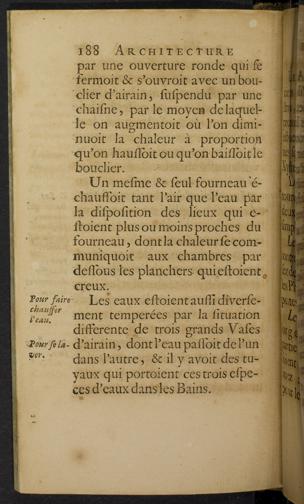 188 ARCHITECTURE
par une ouverture ronde qui ſe
fermoit & s'ouvroit avec un bou-
clier d'airain, ſuſpendu par une
chaiſne, par le moyen de laquel-
le on augmentoit où l'on dimi-
nuoit la chaleur à proportion
qu'on hauſſoit ou qu'on baiſſoit le
bouclier.
Un meſme & ſeul fourneau é-
chauffoit tant l'air que l'eau par
la diſpoſition des lieux qui e-
ſtoient plus ou moins proches du
fourneau, dont la chaleur ſe com-
muniquoit aux chambres par
deſſous les planchers qui eſtoient
creux.
Pour faire
chauffer
l'eau.
Les eaux eſtoient auſſi diverſe-
ment temperées par la ſituation
differente de trois grands Vaſes
Pour ſe la-
ver.
d'airain, dont l'eau paſſoit de l'un
dans l'autre, & il y avoit des tu-
yaux qui portoient ces trois eſpe-
ces d'eaux dans les Bains.